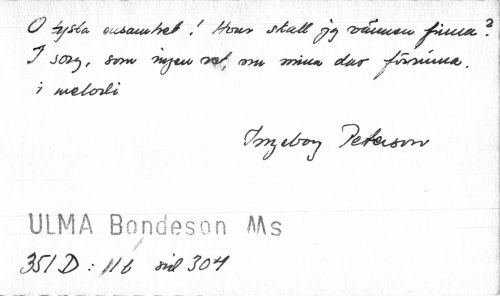 O tysta ensamhet! Hvar skall jg vännen finna?
I sorg, som ingen vet, nu mina dar försvinna.
i melodi
Ingeborg Peterson
ULMA Bondeson Ms
351 D : 116 sid 304